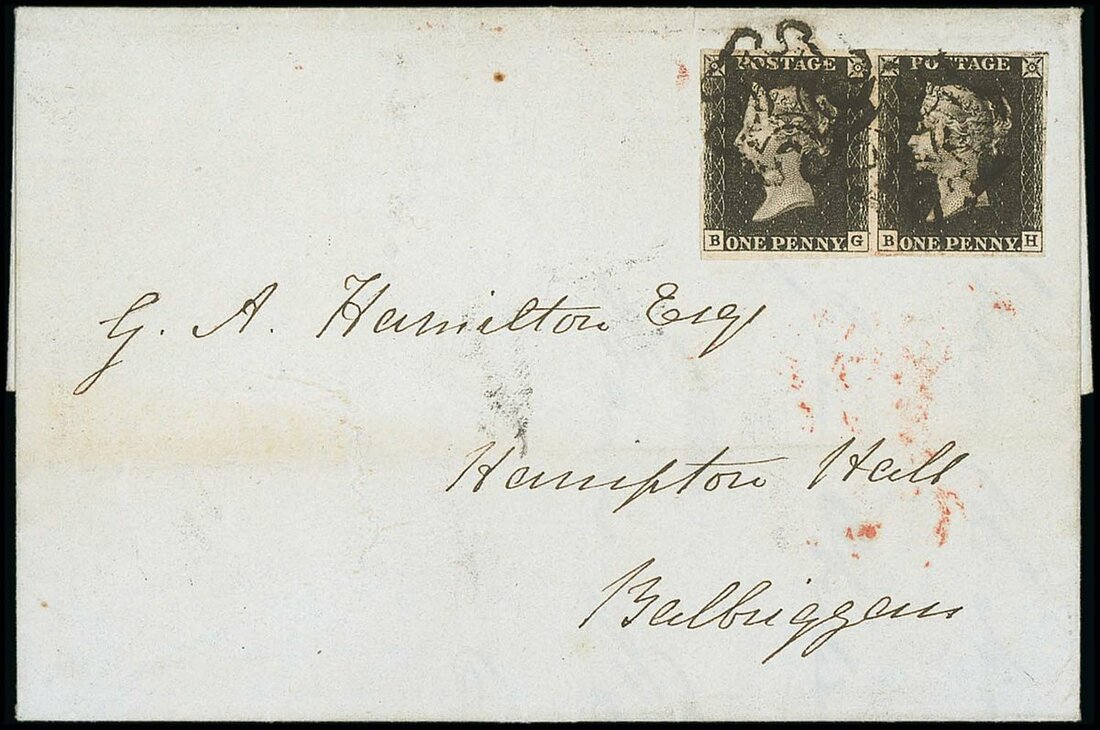 POSTAGE POSTAGE
B ONE PENNY G B ONE PENNY H
G. A. Hamilton Esq
Hampton Hall
Balbriggan